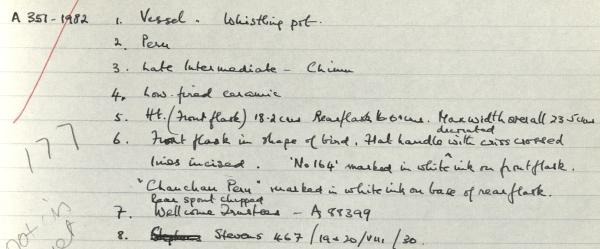 A 351-1982 1. Vessel. Whistling pot.
2. Peru
3. Late Intermediate - Chimu
4. Low-fired ceramic
5. Ht. (Front flask) 18.2 cms Rear flask 16.0 cms. Max width overall 23.5 cms
decorated
6. Front flask in shape of bird. Flat handle with criss crossed
lines incised. 'No 164' marked in white ink on front flask.
"Chanchan Peru" marked in white ink on base of rear flask.
Rear spout chipped
7. Wellcome Trustees - A 88399
8. Stevens 467 / 19+20/VIII/30.
177
not in